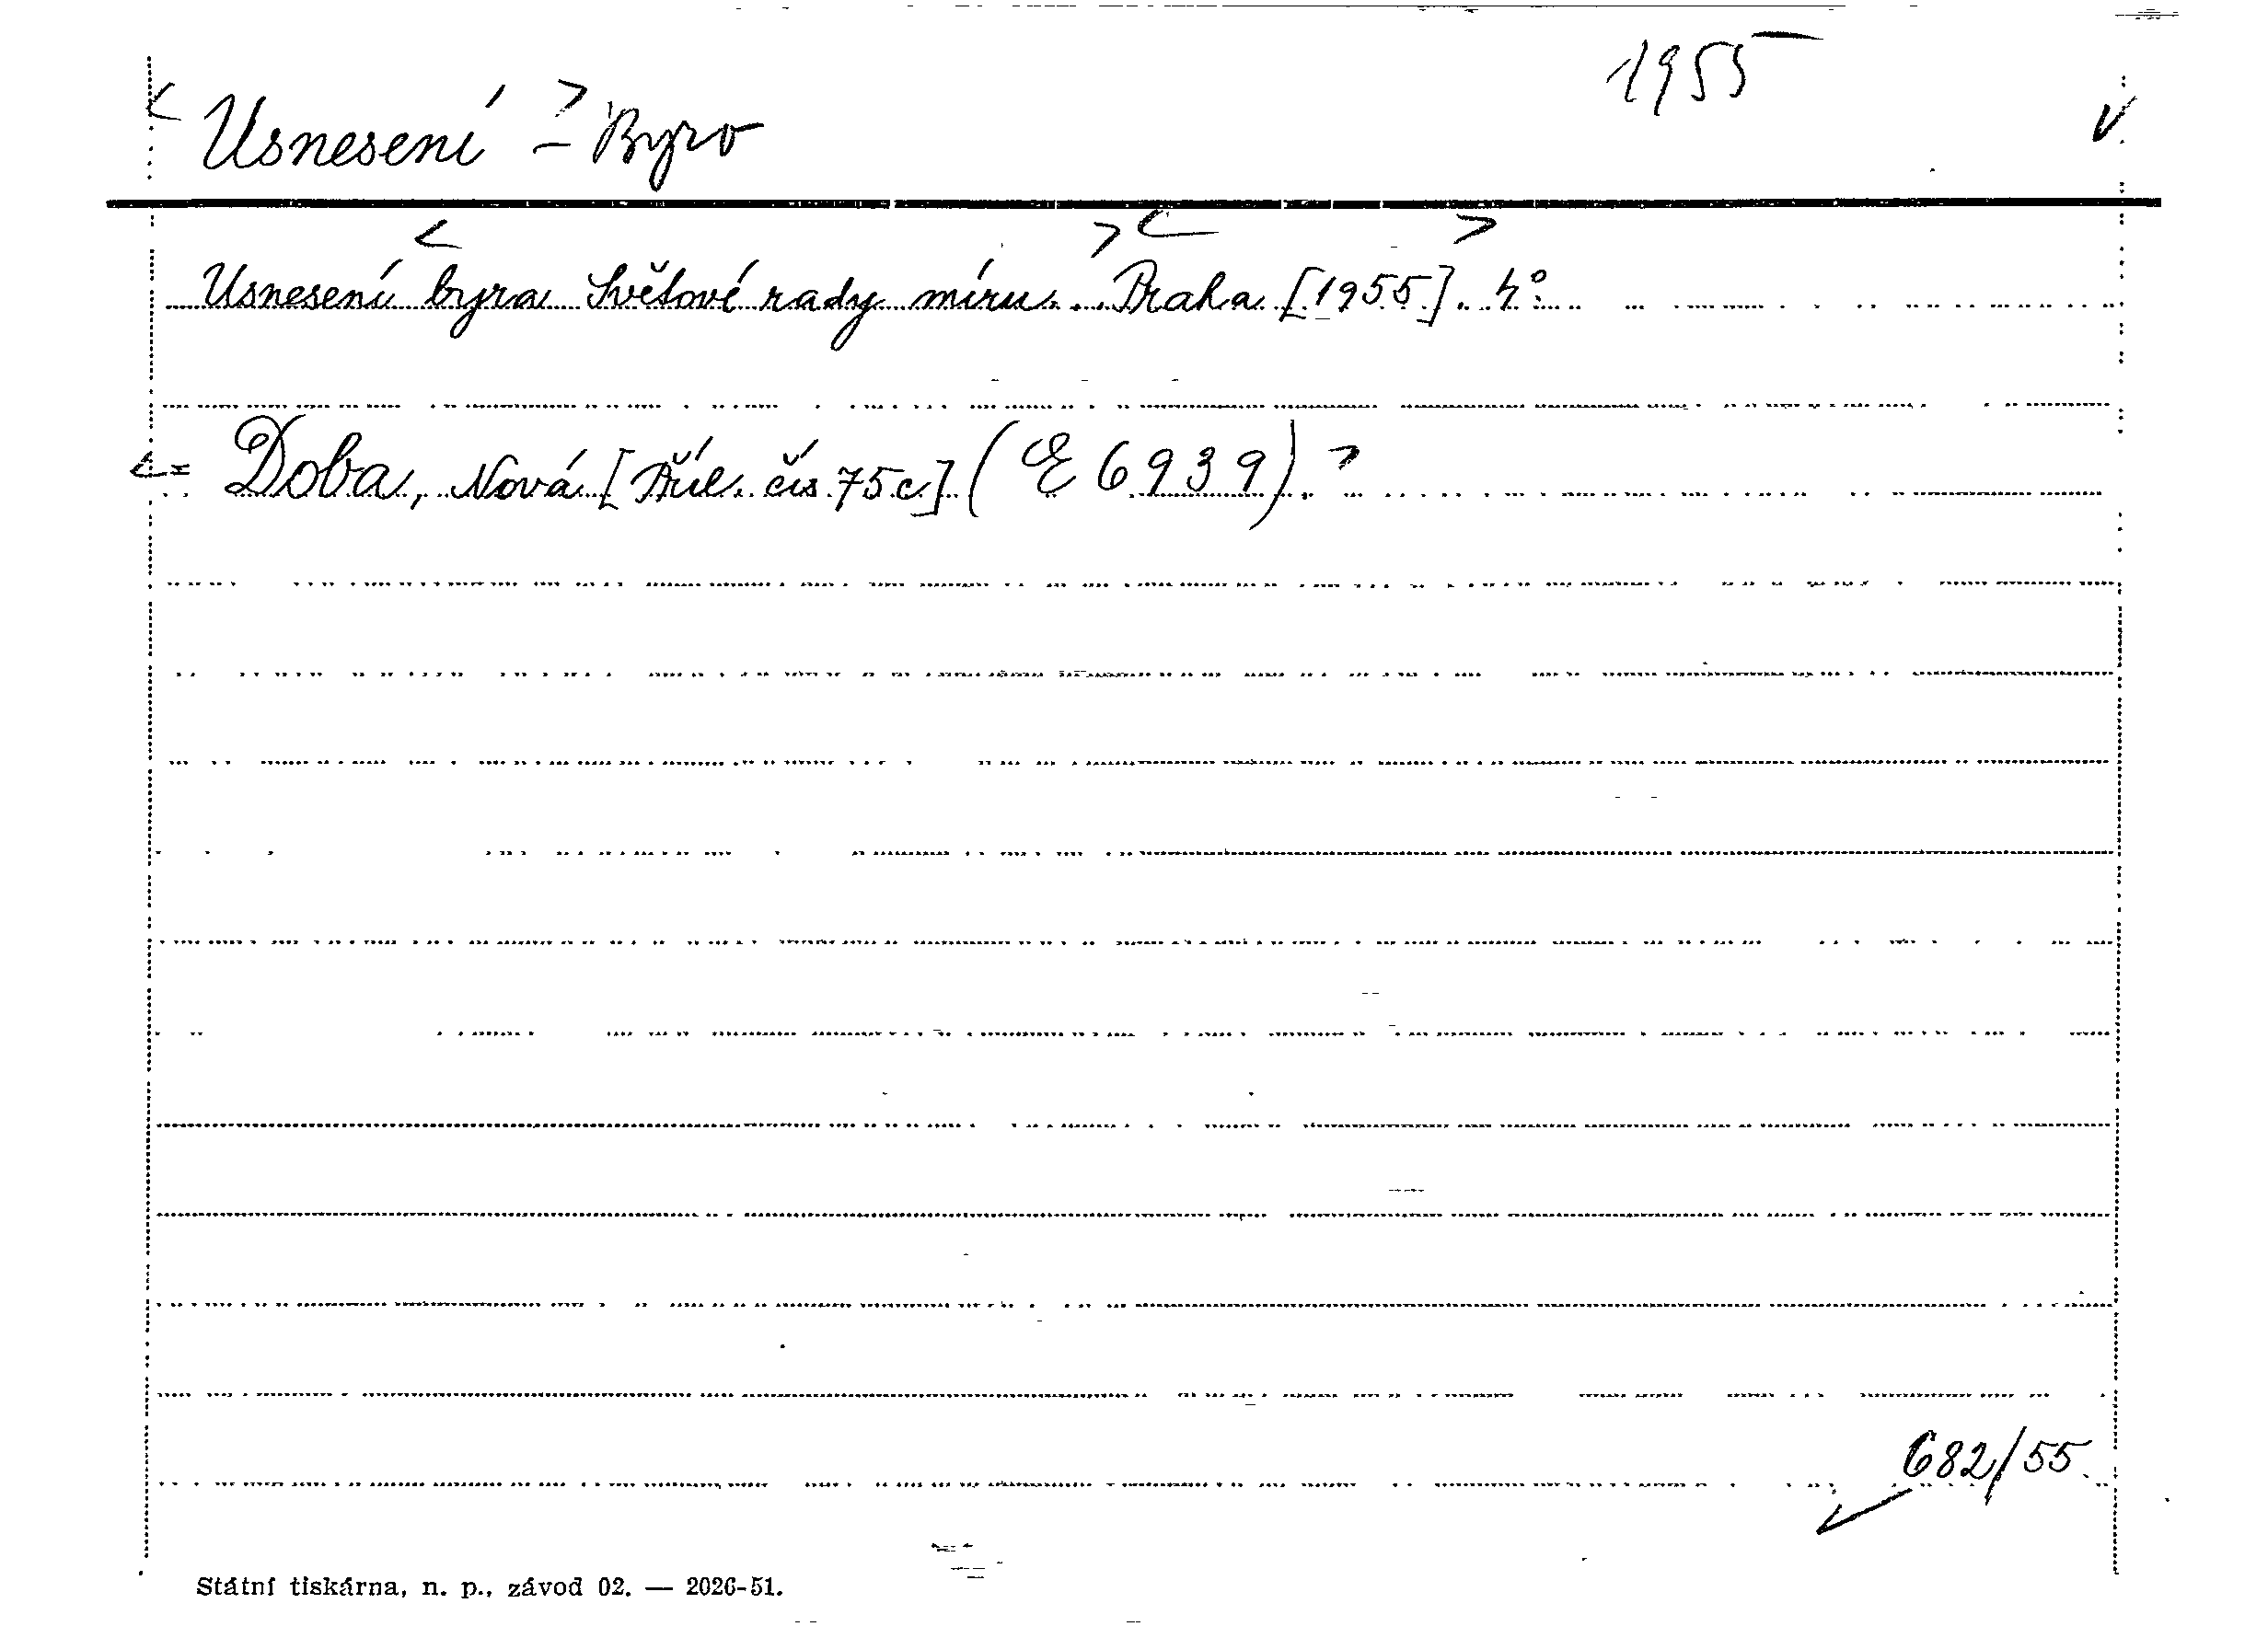 1955
< Usnesení > - Byro
V
Usnesení < byra Světové rady míru. > < Praha [1955]. > 4°.
<= Doba, Nová [Příl. čís. 75c] (E 6939). >
682/55.
Státní tiskárna, n. p., závod 02. — 2026-51.